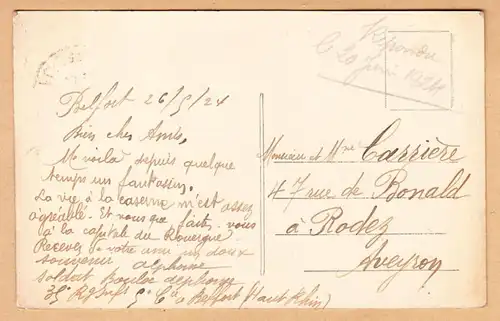 Répondu
le 20 juin 1924
Belfort 26/5/24
Bien chers Amis,
Me voilà depuis quelque
temps un fantassin,
La vie à la caserne m'est assez
agréable. Et vous que faites-vous
à la capitale du Rouergue.
Recevez de votre ami un doux
souvenir alphonse
soldat alphonse
35e Rgt Inf 5e Cie Belfort (Haut Rhin)
Monsieur et Mme Carrière
47 rue de Bonald
à Rodez
Aveyron